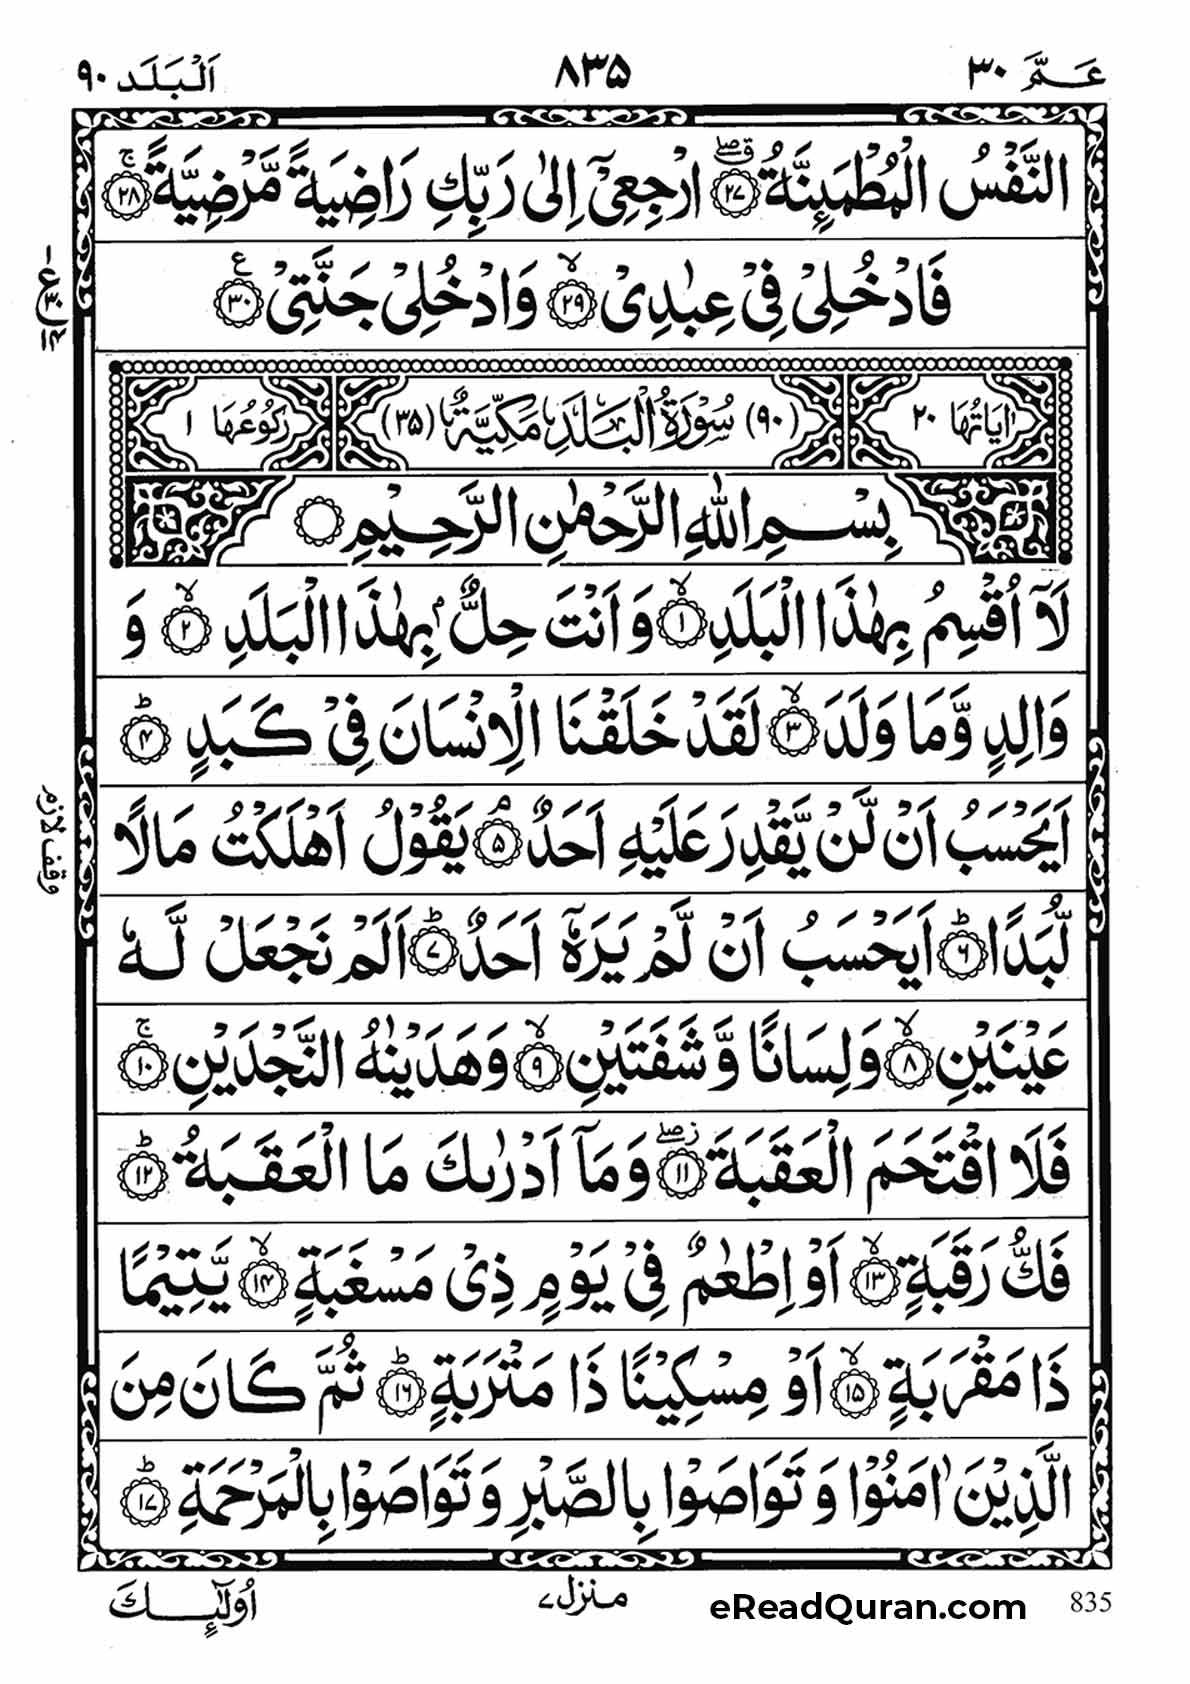 عَـمَّ ٣٠
٨٣٥
اَلْبَلَد ٩٠
النَّفْسُ الْمُطْمَىِٕنَّةُ ﴿۲۷﴾ ارْجِعِیْۤ اِلٰی رَبِّكِ رَاضِیَةً مَّرْضِیَّةً ﴿۲۸﴾
فَادْخُلِیْ فِیْ عِبٰدِیْ ﴿۲۹﴾ وَادْخُلِیْ جَنَّتِیْ ﴿۳۰﴾
اٰیَاتُهَا ٢٠
(٩٠) سُوْرَةُ الْبَلَدِ مَكِّیَّةٌ (٣٥)
رُكُوْعُهَا ١
بِسْمِ اللّٰهِ الرَّحْمٰنِ الرَّحِیْمِ
لَاۤ اُقْسِمُ بِهٰذَا الْبَلَدِ ﴿۱﴾ وَ اَنْتَ حِلٌّۢ بِهٰذَا الْبَلَدِ ﴿۲﴾ وَ
وَالِدٍ وَّ مَا وَلَدَ ﴿۳﴾ لَقَدْ خَلَقْنَا الْاِنْسَانَ فِیْ كَبَدٍ ﴿۴﴾
اَیَحْسَبُ اَنْ لَّنْ یَّقْدِرَ عَلَیْهِ اَحَدٌ ﴿۵﴾ یَقُوْلُ اَهْلَكْتُ مَالًا
لُّبَدًا ﴿۶﴾ اَیَحْسَبُ اَنْ لَّمْ یَرَهٗۤ اَحَدٌ ﴿۷﴾ اَلَمْ نَجْعَلْ لَّهٗ
عَیْنَیْنِ ﴿۸﴾ وَ لِسَانًا وَّ شَفَتَیْنِ ﴿۹﴾ وَ هَدَیْنٰهُ النَّجْدَیْنِ ﴿۱۰﴾
فَلَا اقْتَحَمَ الْعَقَبَةَ ﴿۱۱﴾ وَ مَاۤ اَدْرٰىكَ مَا الْعَقَبَةُ ﴿۱۲﴾
فَكُّ رَقَبَةٍ ﴿۱۳﴾ اَوْ اِطْعٰمٌ فِیْ یَوْمٍ ذِیْ مَسْغَبَةٍ ﴿۱۴﴾ یَّتِیْمًا
ذَا مَقْرَبَةٍ ﴿۱۵﴾ اَوْ مِسْكِیْنًا ذَا مَتْرَبَةٍ ﴿۱۶﴾ ثُمَّ كَانَ مِنَ
الَّذِیْنَ اٰمَنُوْا وَ تَوَاصَوْا بِالصَّبْرِ وَ تَوَاصَوْا بِالْمَرْحَمَةِ ﴿۱۷﴾
وقف لازم
اُولٰٓىِٕكَ
منزل ٧
eReadQuran.com
835